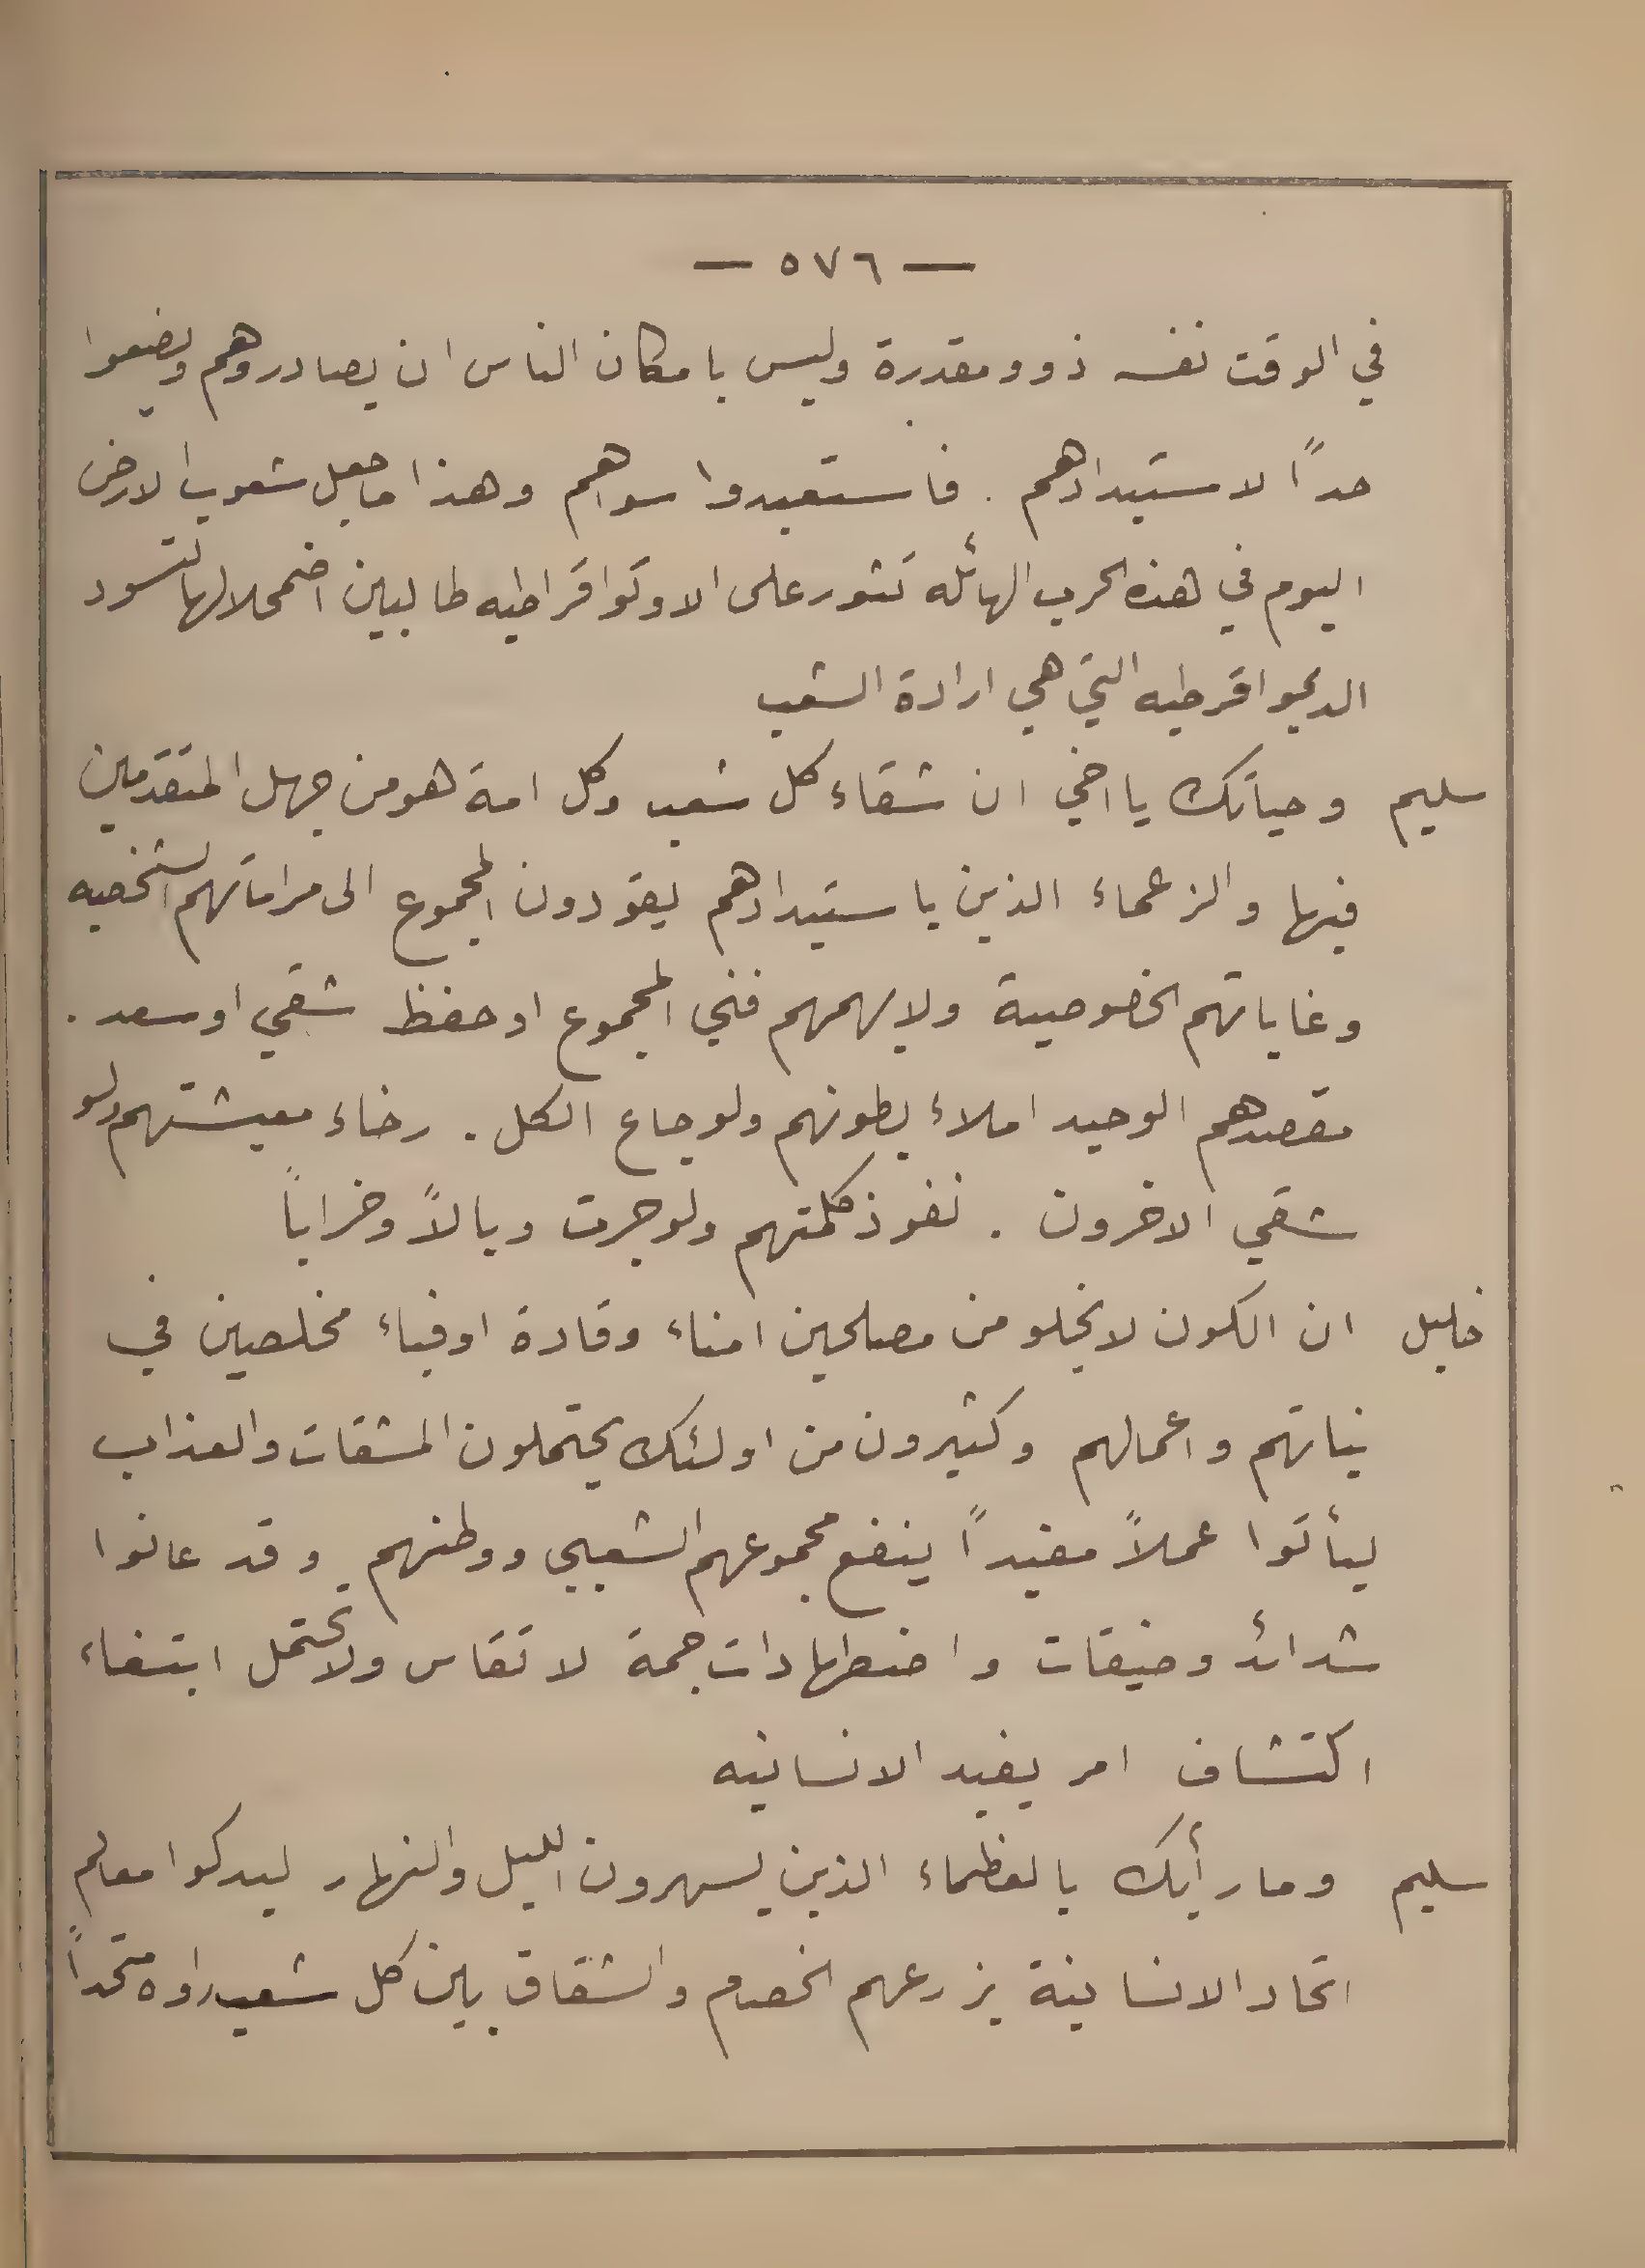 — ٥٧٦ —
في الوقت نفسه ذوو مقدرة وليس بامكان الناس ان يصادروهم ويضعوا
حداً لاستبدادهم . فاستعبدوا سواهم وهذا ما جعل شعوب الارض
اليوم في هذه الحرب الهائله تثور على الاوتوقراطيه طالبين اضمحلالها لتسود
الديموقرطيه التي هي ارادة الشعب
سليم وحياتك يا اخي ان شقاء كل شعب وكل امة هو من جهل المتقدمين
فيها والزعماء الذين باستبدادهم يقودون المجموع الى مراماتهم الشخصيه
وغاياتهم الخصوصية ولا يهمهم فني المجموع او حفظ شقي او سعد .
مقصدهم الوحيد املاء بطونهم ولو جاع الكل . رخاء معيشتهم ولو
شقي الاخرون . نفوذ كلمتهم ولو جرت وبالاً وخراباً
خليل ان الكون لا يخلو من مصلحين امناء وقادة اوفياء مخلصين في
نياتهم واعمالهم وكثيرون من اولئك يحتملون المشقات والعذاب
ليأتوا عملاً مفيداً ينفع مجموعهم الشعبي ووطنهم وقد عانوا
شدائد وضيقات واضطهادات جمة لا تقاس ولا تحتمل ابتغاء
اكتشاف امر يفيد الانسانيه
سليم وما رأيك بالعظماء الذين يسهرون الليل والنهار ليدكوا معالم
اتحاد الانسانية بزرعهم الخصام والشقاق بين كل شعب راوه متحداً